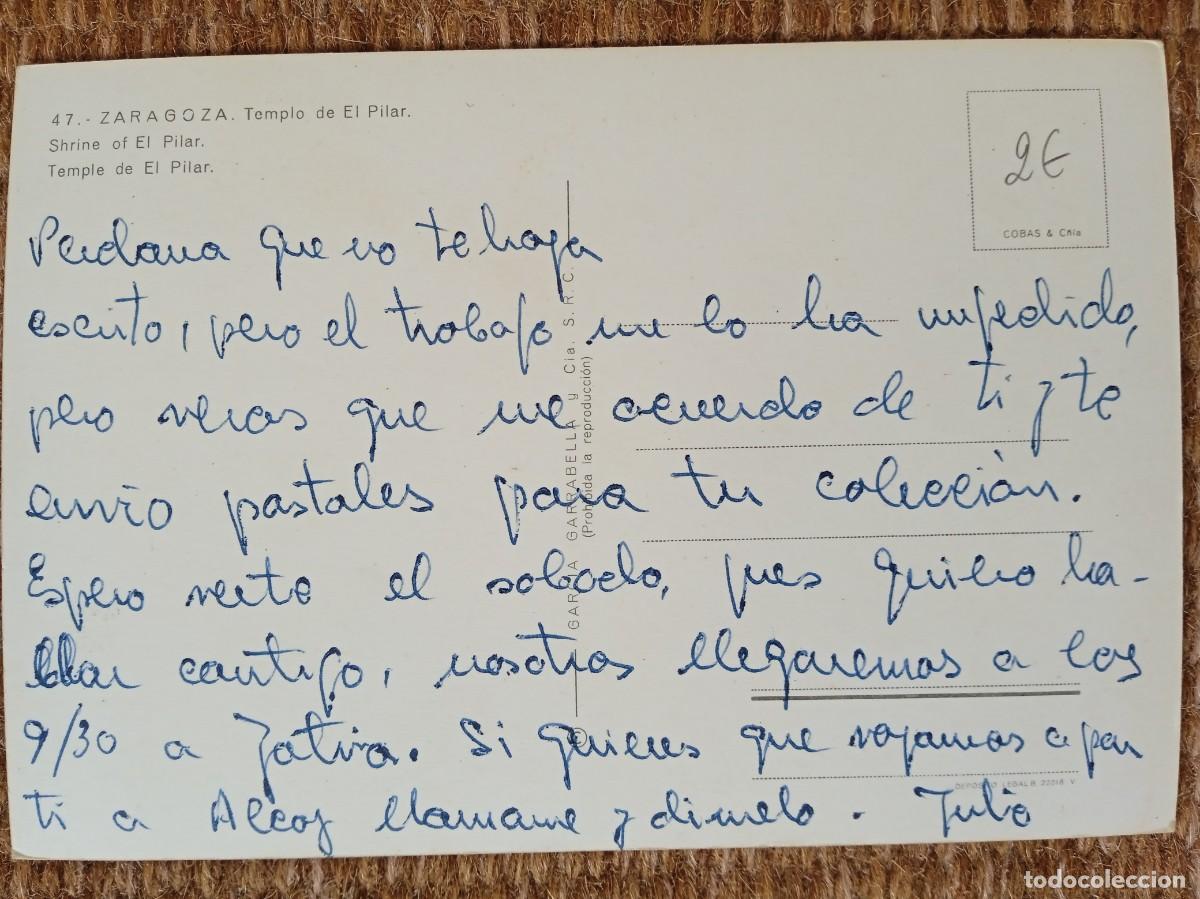 47.- ZARAGOZA. Templo de El Pilar.
Shrine of El Pilar.
Temple de El Pilar.
2€
COBAS & Cñia
Perdona que no te haya
escrito, pero el trabajo me lo ha impedido,
pero veras que me acuerdo de ti y te
envio postales para tu colección.
Espero verte el sabado, pues quiero ha-
blar contigo, nosotros llegaremos a las
9/30 a Jativa. Si quieres que vayamos a por
ti a Alcoy llamame y dimelo. Julio
© GARCIA GARRABELLA y Cia. S. R. C.
(Prohibida la reproducción)
DEPOSITO LEGAL B. 22018 V
todocoleccion